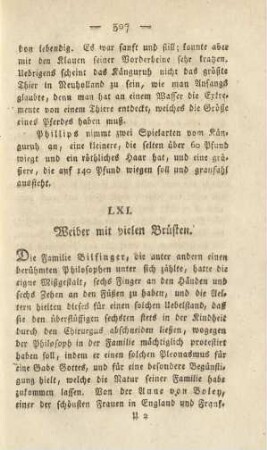 — 307 —
von lebendig. Es war sanft und still; kannte aber
mit den Klauen seiner Vorderbeine sehr kratzen.
Uebrigens scheint das Känguruh nicht das größte
Thier in Neuholland zu sein, wie man Anfangs
glaubte, denn man hat an einem Wasser die Exkre-
mente von einem Thiere entdeckt, welches die Größe
eines Pferdes haben muß.
Phillips nimmt zwei Spielarten vom Kän-
guruh an, eine kleinere, die selten über 60 Pfund
wiegt und ein röthliches Haar hat, und eine grö-
ßere, die auf 140 Pfund wiegen soll und graufahl
aussieht.
LXI.
Weiber mit vielen Brüsten.
Die Familie Bilfinger, die unter andern einen
berühmten Philosophen unter sich zählte, hatte die
eigne Mißgestalt, sechs Finger an den Händen und
sechs Zehen an den Füßen zu haben, und die Ael-
tern hielten dieses für einen solchen Uebelstand, daß
sie den überflüssigen sechsten stets in der Kindheit
durch den Chirurgus abschneiden ließen, wogegen
der Philosoph in der Familie mächtiglich protestiret
haben soll, indem er einen solchen Pleonasmus für
eine Gabe Gottes, und für eine besondere Begünsti-
gung hielt, welche die Natur seiner Familie habe
zukommen lassen. Von der Anne von Boley,
einer der schönsten Frauen in England und Frank-
U 2